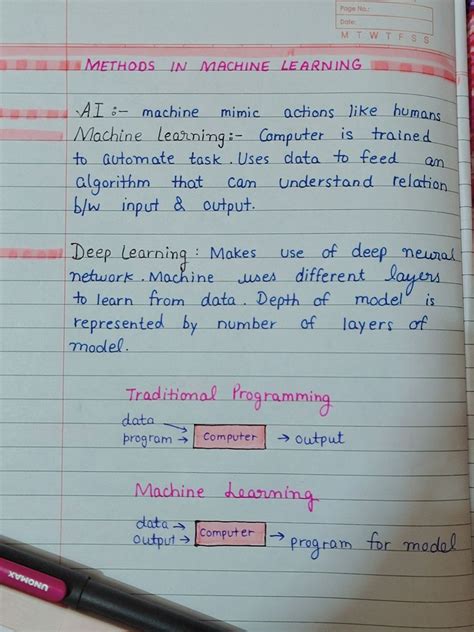 Page No.:
Date:
M T W T F S S
METHODS IN MACHINE LEARNING
AI :- machine mimic actions like humans
Machine Learning:- Computer is trained
to automate task. Uses data to feed an
algorithm that can understand relation
b/w input & output.
Deep Learning: Makes use of deep neural
network. Machine uses different layers
to learn from data. Depth of model is
represented by number of layers of
model.
Traditional Programming
data
program → Computer → output
Machine Learning
data →
output → Computer → program for model
UNOMAX